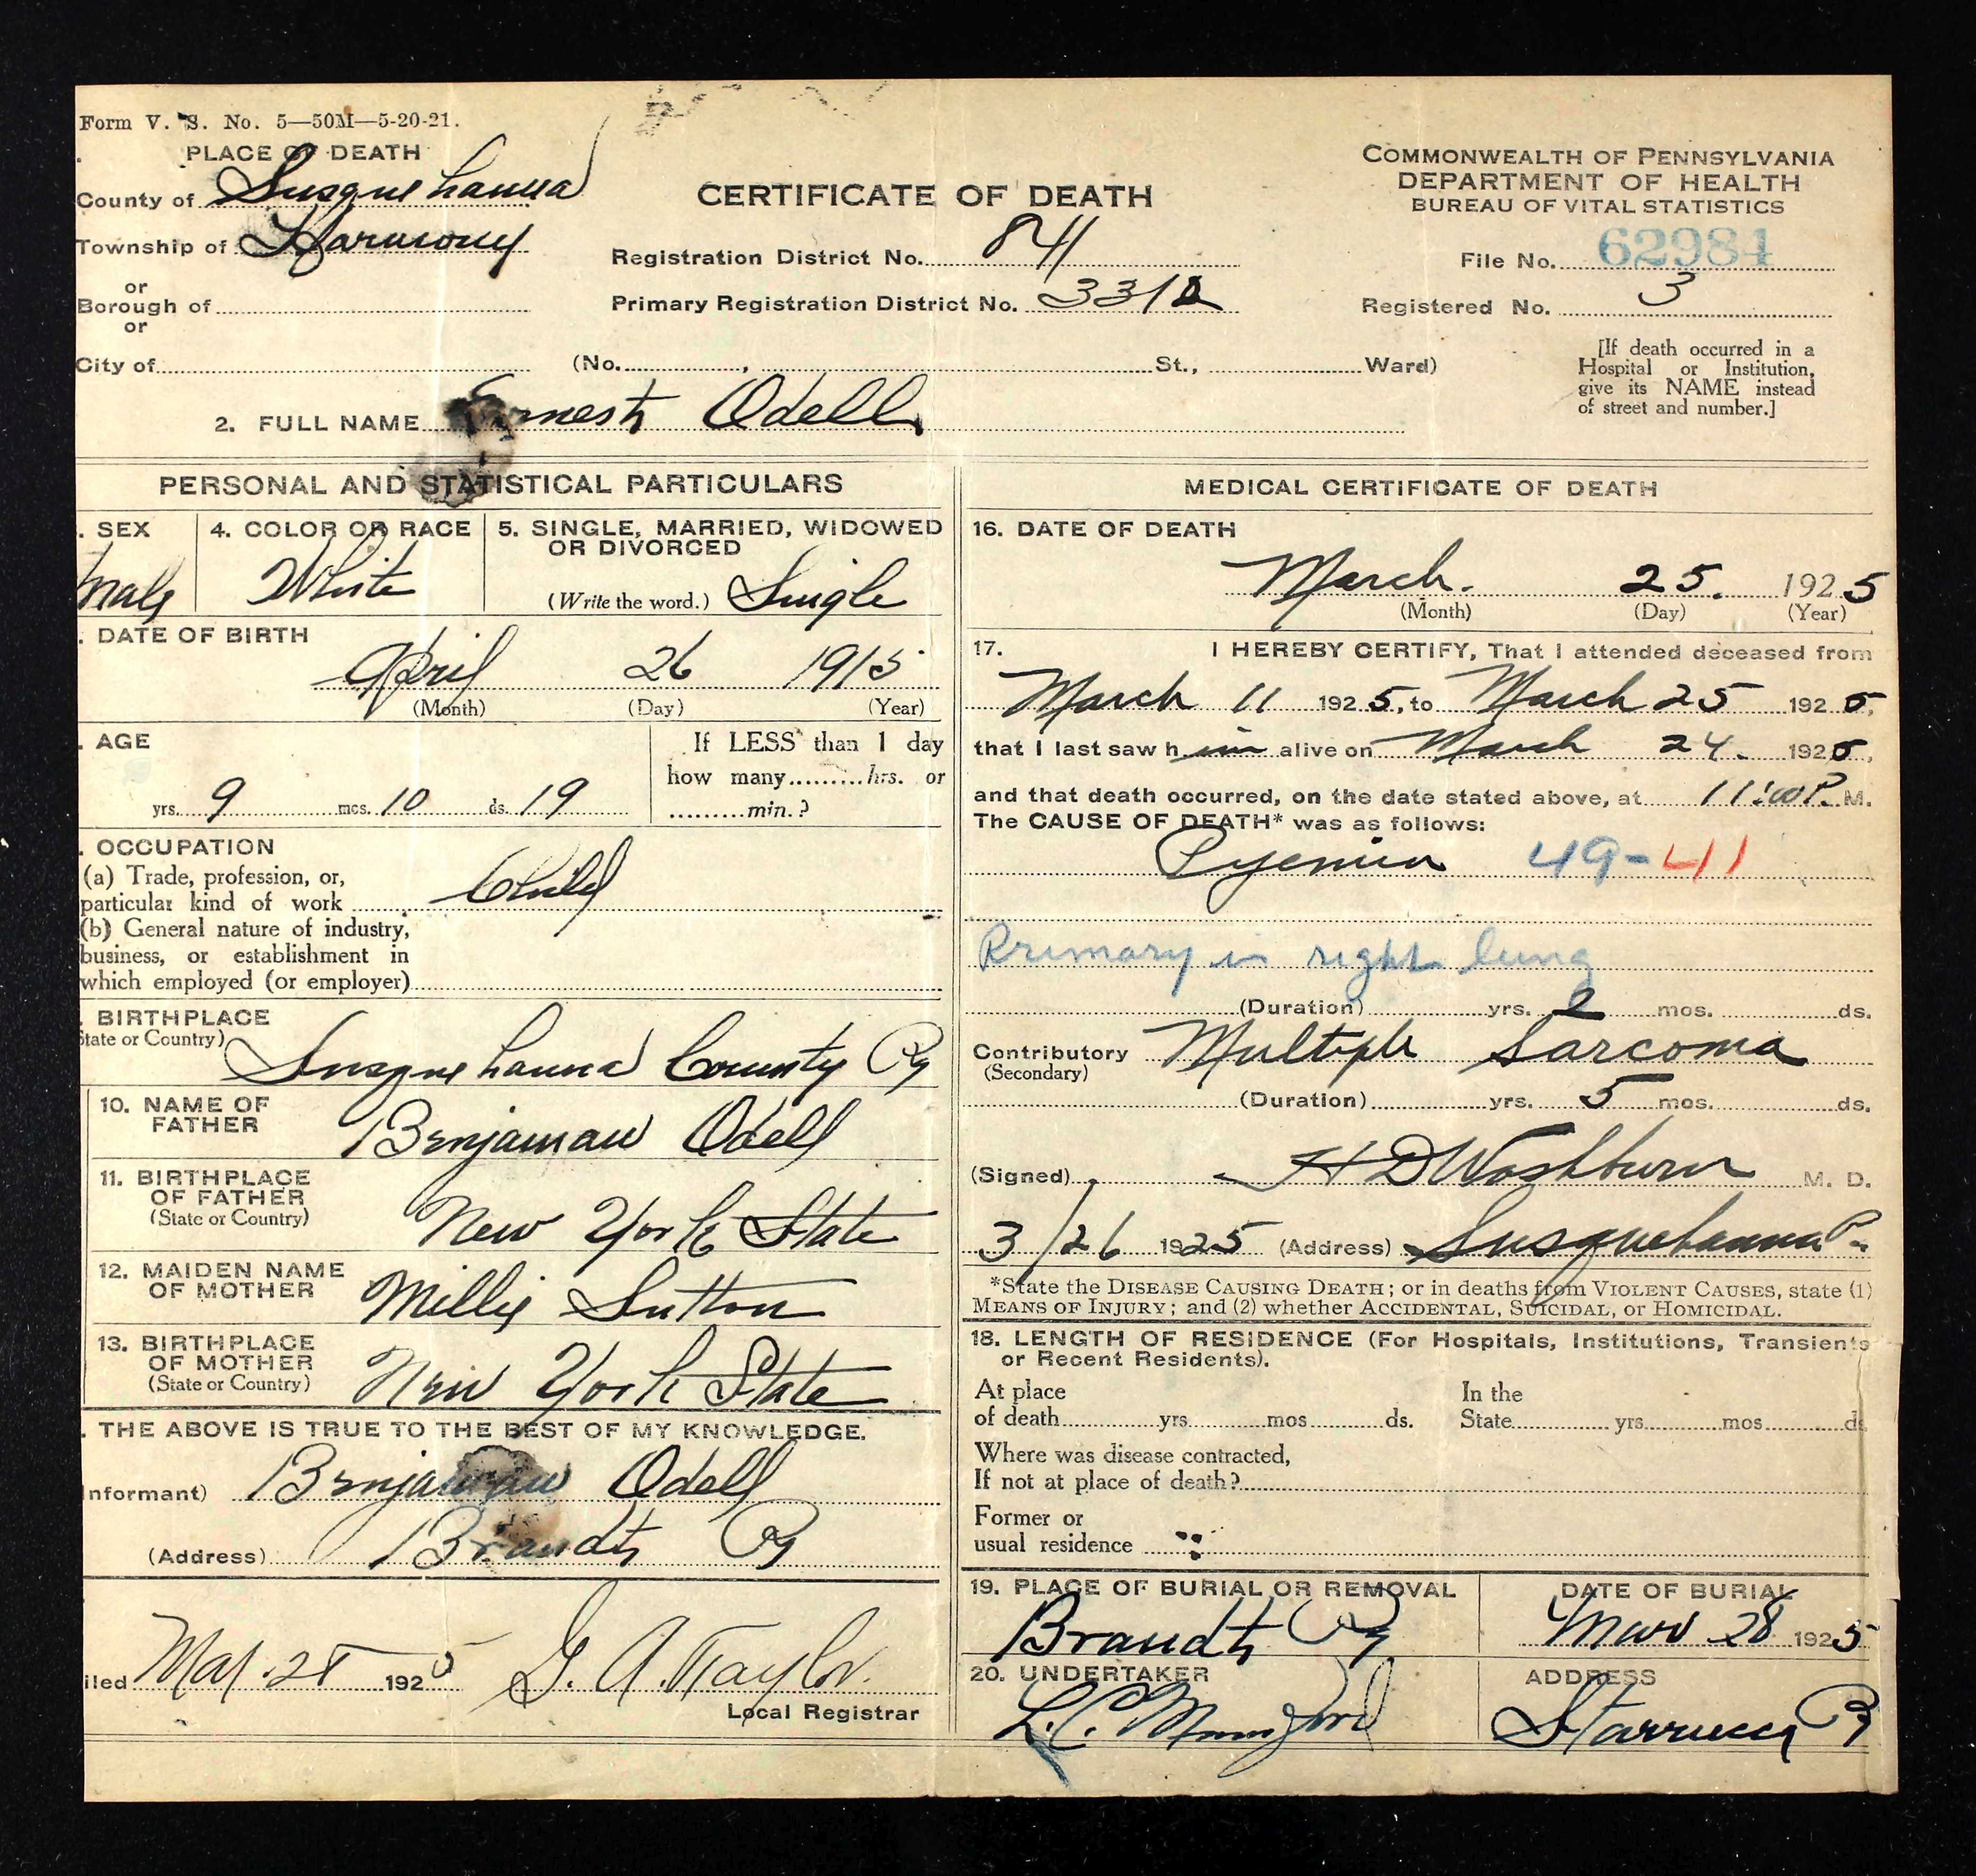 Form V. S. No. 5—50M—5-20-21.
PLACE OF DEATH
County of Susquehanna
Township of Harmony
or
Borough of
or
City of
CERTIFICATE OF DEATH
Registration District No. 841
Primary Registration District No. 3312
(No. , St., Ward)
COMMONWEALTH OF PENNSYLVANIA
DEPARTMENT OF HEALTH
BUREAU OF VITAL STATISTICS
File No. 62984
Registered No. 3
[If death occurred in a
Hospital or Institution,
give its NAME instead
of street and number.]
2. FULL NAME Ernest Odell
PERSONAL AND STATISTICAL PARTICULARS
. SEX
Male
4. COLOR OR RACE
White
5. SINGLE, MARRIED, WIDOWED
OR DIVORCED
(Write the word.) Single
. DATE OF BIRTH
April 26 1915
(Month) (Day) (Year)
. AGE
yrs. 9 mos. 10 ds. 19
If LESS than 1 day
how many hrs. or
min.?
. OCCUPATION
(a) Trade, profession, or,
particular kind of work Child
(b) General nature of industry,
business, or establishment in
which employed (or employer)
. BIRTHPLACE
State or Country)
Susquehanna County Pa
10. NAME OF
FATHER
Benjaman Odell
11. BIRTHPLACE
OF FATHER
(State or Country)
New York State
12. MAIDEN NAME
OF MOTHER
Millie Sutton
13. BIRTHPLACE
OF MOTHER
(State or Country)
New York State
. THE ABOVE IS TRUE TO THE BEST OF MY KNOWLEDGE.
nformant) Benjaman Odell
(Address) Brandt Pa
iled Mar. 28 1925 G. A. Taylor.
Local Registrar
MEDICAL CERTIFICATE OF DEATH
16. DATE OF DEATH
March. 25. 1925
(Month) (Day) (Year)
17. I HEREBY CERTIFY, That I attended deceased from
March 11 1925, to March 25 1925,
that I last saw h im alive on March 24. 1925,
and that death occurred, on the date stated above, at 11:00 P. M.
The CAUSE OF DEATH* was as follows:
Pyemia 49-41
Primary in right lung
(Duration) yrs. 2 mos. ds.
Contributory Multiple Sarcoma
(Secondary)
(Duration) yrs. 5 mos. ds.
(Signed) H D Washburn M. D.
3/26 1925 (Address) Susquehanna Pa.
*State the DISEASE CAUSING DEATH; or in deaths from VIOLENT CAUSES, state (1)
MEANS OF INJURY; and (2) whether ACCIDENTAL, SUICIDAL, or HOMICIDAL.
18. LENGTH OF RESIDENCE (For Hospitals, Institutions, Transients
or Recent Residents).
At place In the
of death yrs. mos ds. State yrs. mos ds
Where was disease contracted,
If not at place of death?
Former or
usual residence
19. PLACE OF BURIAL OR REMOVAL
Brandt Pa
DATE OF BURIAL
Mar 28 1925
20. UNDERTAKER
L. C. Mumford
ADDRESS
Starrucca Pa